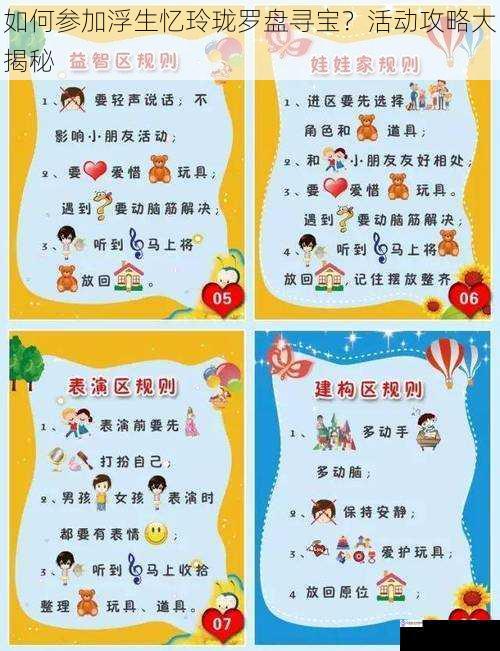 如何参加浮生忆玲珑罗盘寻宝？活动攻略大
揭秘
益智区规则
1、要轻声说话，不
影响小朋友活动；
2、要爱惜玩具，
遇到要动脑筋解决；
3、听到马上将
放回。
05
娃娃家规则
1、进区要先选择
角色和道具；
2、和小朋友友好相处；
3、要爱惜玩具。
遇到要动脑筋解决；
4、听到马上将
放回，记住摆放整齐
06
表演区规则
1、表演前要先
打扮自己；
2、男孩女孩表演时
都要有表情；
3、听到马上收拾
整理玩具、道具。
07
建构区规则
1、多动手
多动脑；
2、保持安静；
3、爱护玩具；
4 放回原位；